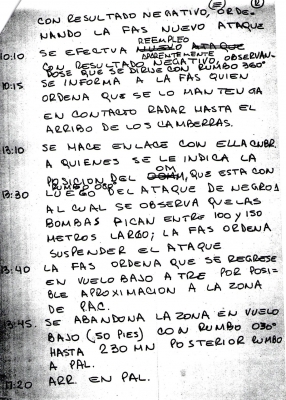 CON RESULTADO NEGATIVO, ORDE-
NANDO LA FAS NUEVO ATAQUE
REEMPLEO
10:10 SE EFECTUA NUEVO ATAQUE
APARENTEMENTE
CON RESULTADO NEGATIVO, OBSERVAN-
DOSE QUE SE DIRIGE CON RUMBO 360°
10:15 SE INFORMA A LA FAS QUIEN
ORDENA QUE SE LO MANTENGA
EN CONTACTO RADAR HASTA EL
ARRIBO DE LOS CAMBERRAS.
13:10 SE HACE ENLACE CON EL
A QUIENES SE LE INDICA LA
OM
POSICION DEL QUE ESTA CON
RUMBO
13:30 LUEGO DEL ATAQUE DE NEGROS
AL CUAL SE OBSERVA QUE LAS
BOMBAS PICAN ENTRE 100 y 150
METROS LARGO; LA FAS ORDENA
SUSPENDER EL ATAQUE
13:40 LA FAS ORDENA QUE SE REGRESE
EN VUELO BAJO A TRE POR POSI-
BLE APROXIMACION A LA ZONA
DE PAC.
13:45. SE ABANDONA LA ZONA EN VUELO
BAJO (50 PIES) CON RUMBO 030°
HASTA 230 MN POSTERIOR RUMBO
A PAL.
17:20 ARR. EN PAL.